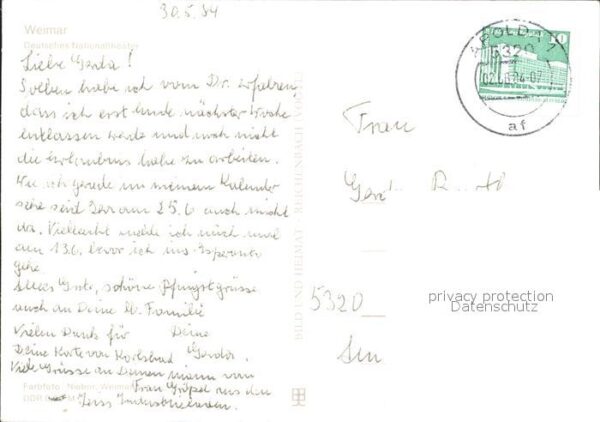 30.5.84
Weimar
Deutsches Nationaltheater
Liebe Gerda!
Soeben habe ich vom Dr. erfahren
dass ich erst Ende nächster Woche
entlassen werde und noch nicht
die Erlaubnis habe zu arbeiten.
Wie ich gerade in meinem Kalender
sehe seid Ihr am 25.6 auch nicht
da. Vielleicht melde ich mich mal
am 13.6. bevor ich ins
gehe.
Alles Gute, schöne Pfingstgrüsse
auch an Deine lb. Familie
Vielen Dank für Deine
Deine Karte von Karlsbad Gerda.
Viele Grüsse an Deinen Mann von
Frau aus den
Farbfoto: Weimar
DDR
BILD UND HEIMAT REICHENBACH (VOGTL)
APOLDA 1
5320
02.06.84-07
af
10
Frau
5320
privacy protection
Datenschutz
Am